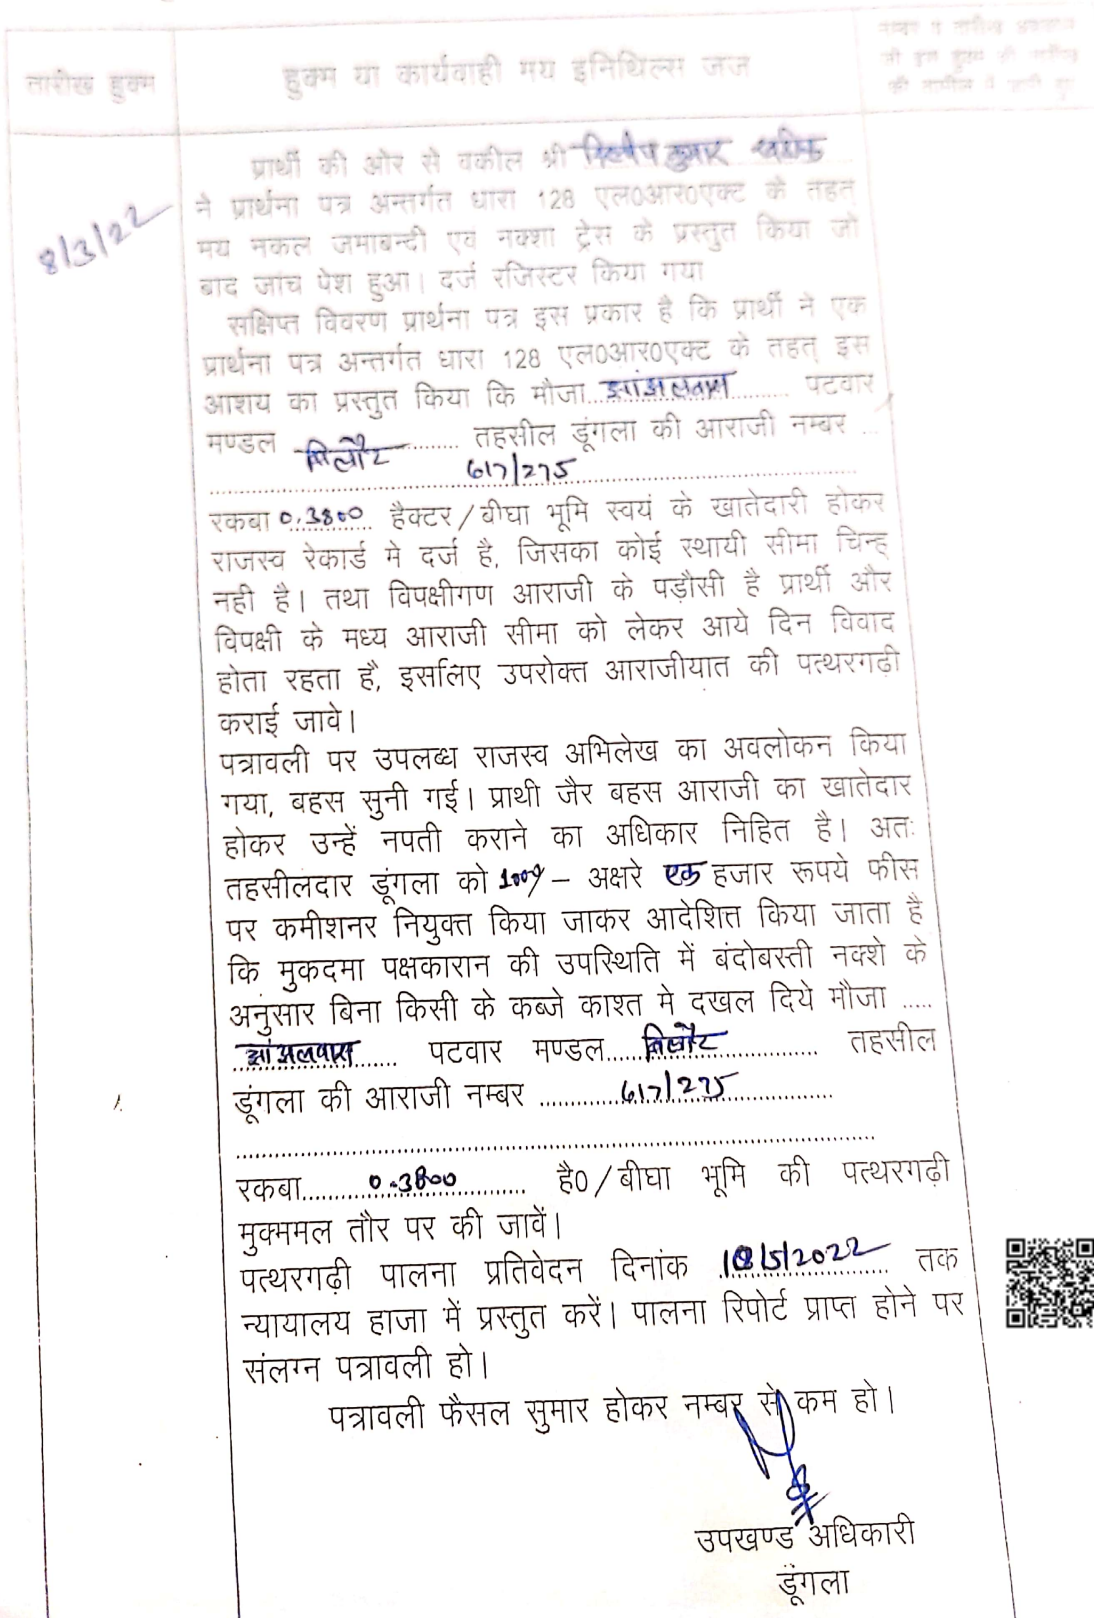 तारीख हुक्म
हुक्म या कार्यवाही मय इनिथिल्स जज
नम्बर व तारीख
जो इस हुक्म की तारीख
की तामील में जारी हुए
8/3/22
प्रार्थी की ओर से वकील श्री दिलीप कुमार
ने प्रार्थना पत्र अन्तर्गत धारा 128 एल0आर0एक्ट के तहत्
मय नकल जमाबन्दी एवं नक्शा ट्रेस के प्रस्तुत किया जो
बाद जांच पेश हुआ। दर्ज रजिस्टर किया गया
सक्षिप्त विवरण प्रार्थना पत्र इस प्रकार है कि प्रार्थी ने एक
प्रार्थना पत्र अन्तर्गत धारा 128 एल0आर0एक्ट के तहत् इस
आशय का प्रस्तुत किया कि मौजा..आंअलवास.......... पटवार
मण्डल बिलौट ......... तहसील डूंगला की आराजी नम्बर ...
617/275
रकबा 0.3800 हैक्टर/बीघा भूमि स्वयं के खातेदारी होकर
राजस्व रेकार्ड मे दर्ज है, जिसका कोई स्थायी सीमा चिन्ह
नही है। तथा विपक्षीगण आराजी के पड़ौसी है प्रार्थी और
विपक्षी के मध्य आराजी सीमा को लेकर आये दिन विवाद
होता रहता है, इसलिए उपरोक्त आराजीयात की पत्थरगढी
कराई जावे।
पत्रावली पर उपलब्ध राजस्व अभिलेख का अवलोकन किया
गया, बहस सुनी गई। प्राथी जैर बहस आराजी का खातेदार
होकर उन्हें नपती कराने का अधिकार निहित है। अतः
तहसीलदार डूंगला को 1000/- अक्षरे एक हजार रूपये फीस
पर कमीशनर नियुक्त किया जाकर आदेशित किया जाता है
कि मुकदमा पक्षकारान की उपस्थिति में बंदोबस्ती नक्शे के
अनुसार बिना किसी के कब्जे काश्त मे दखल दिये मौजा .....
आंअलवास...... पटवार मण्डल.....बिलौट............... तहसील
डूंगला की आराजी नम्बर ............617/275...............
रकबा..........0.3800.......... है0/बीघा भूमि की पत्थरगढ़ी
मुक्ममल तौर पर की जावें।
पत्थरगढ़ी पालना प्रतिवेदन दिनांक 18/5/2022 तक
न्यायालय हाजा में प्रस्तुत करें। पालना रिपोर्ट प्राप्त होने पर
संलग्न पत्रावली हो।
पत्रावली फैसल सुमार होकर नम्बर से कम हो।
उपखण्ड अधिकारी
डूंगला